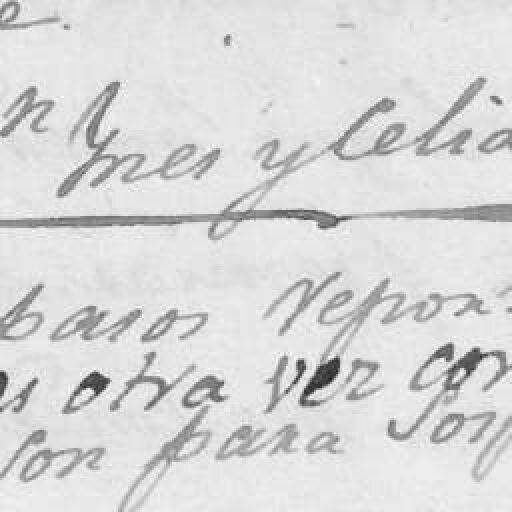 e.
n Ynes y Celia
pasos repon
es otra vez con
son para sor